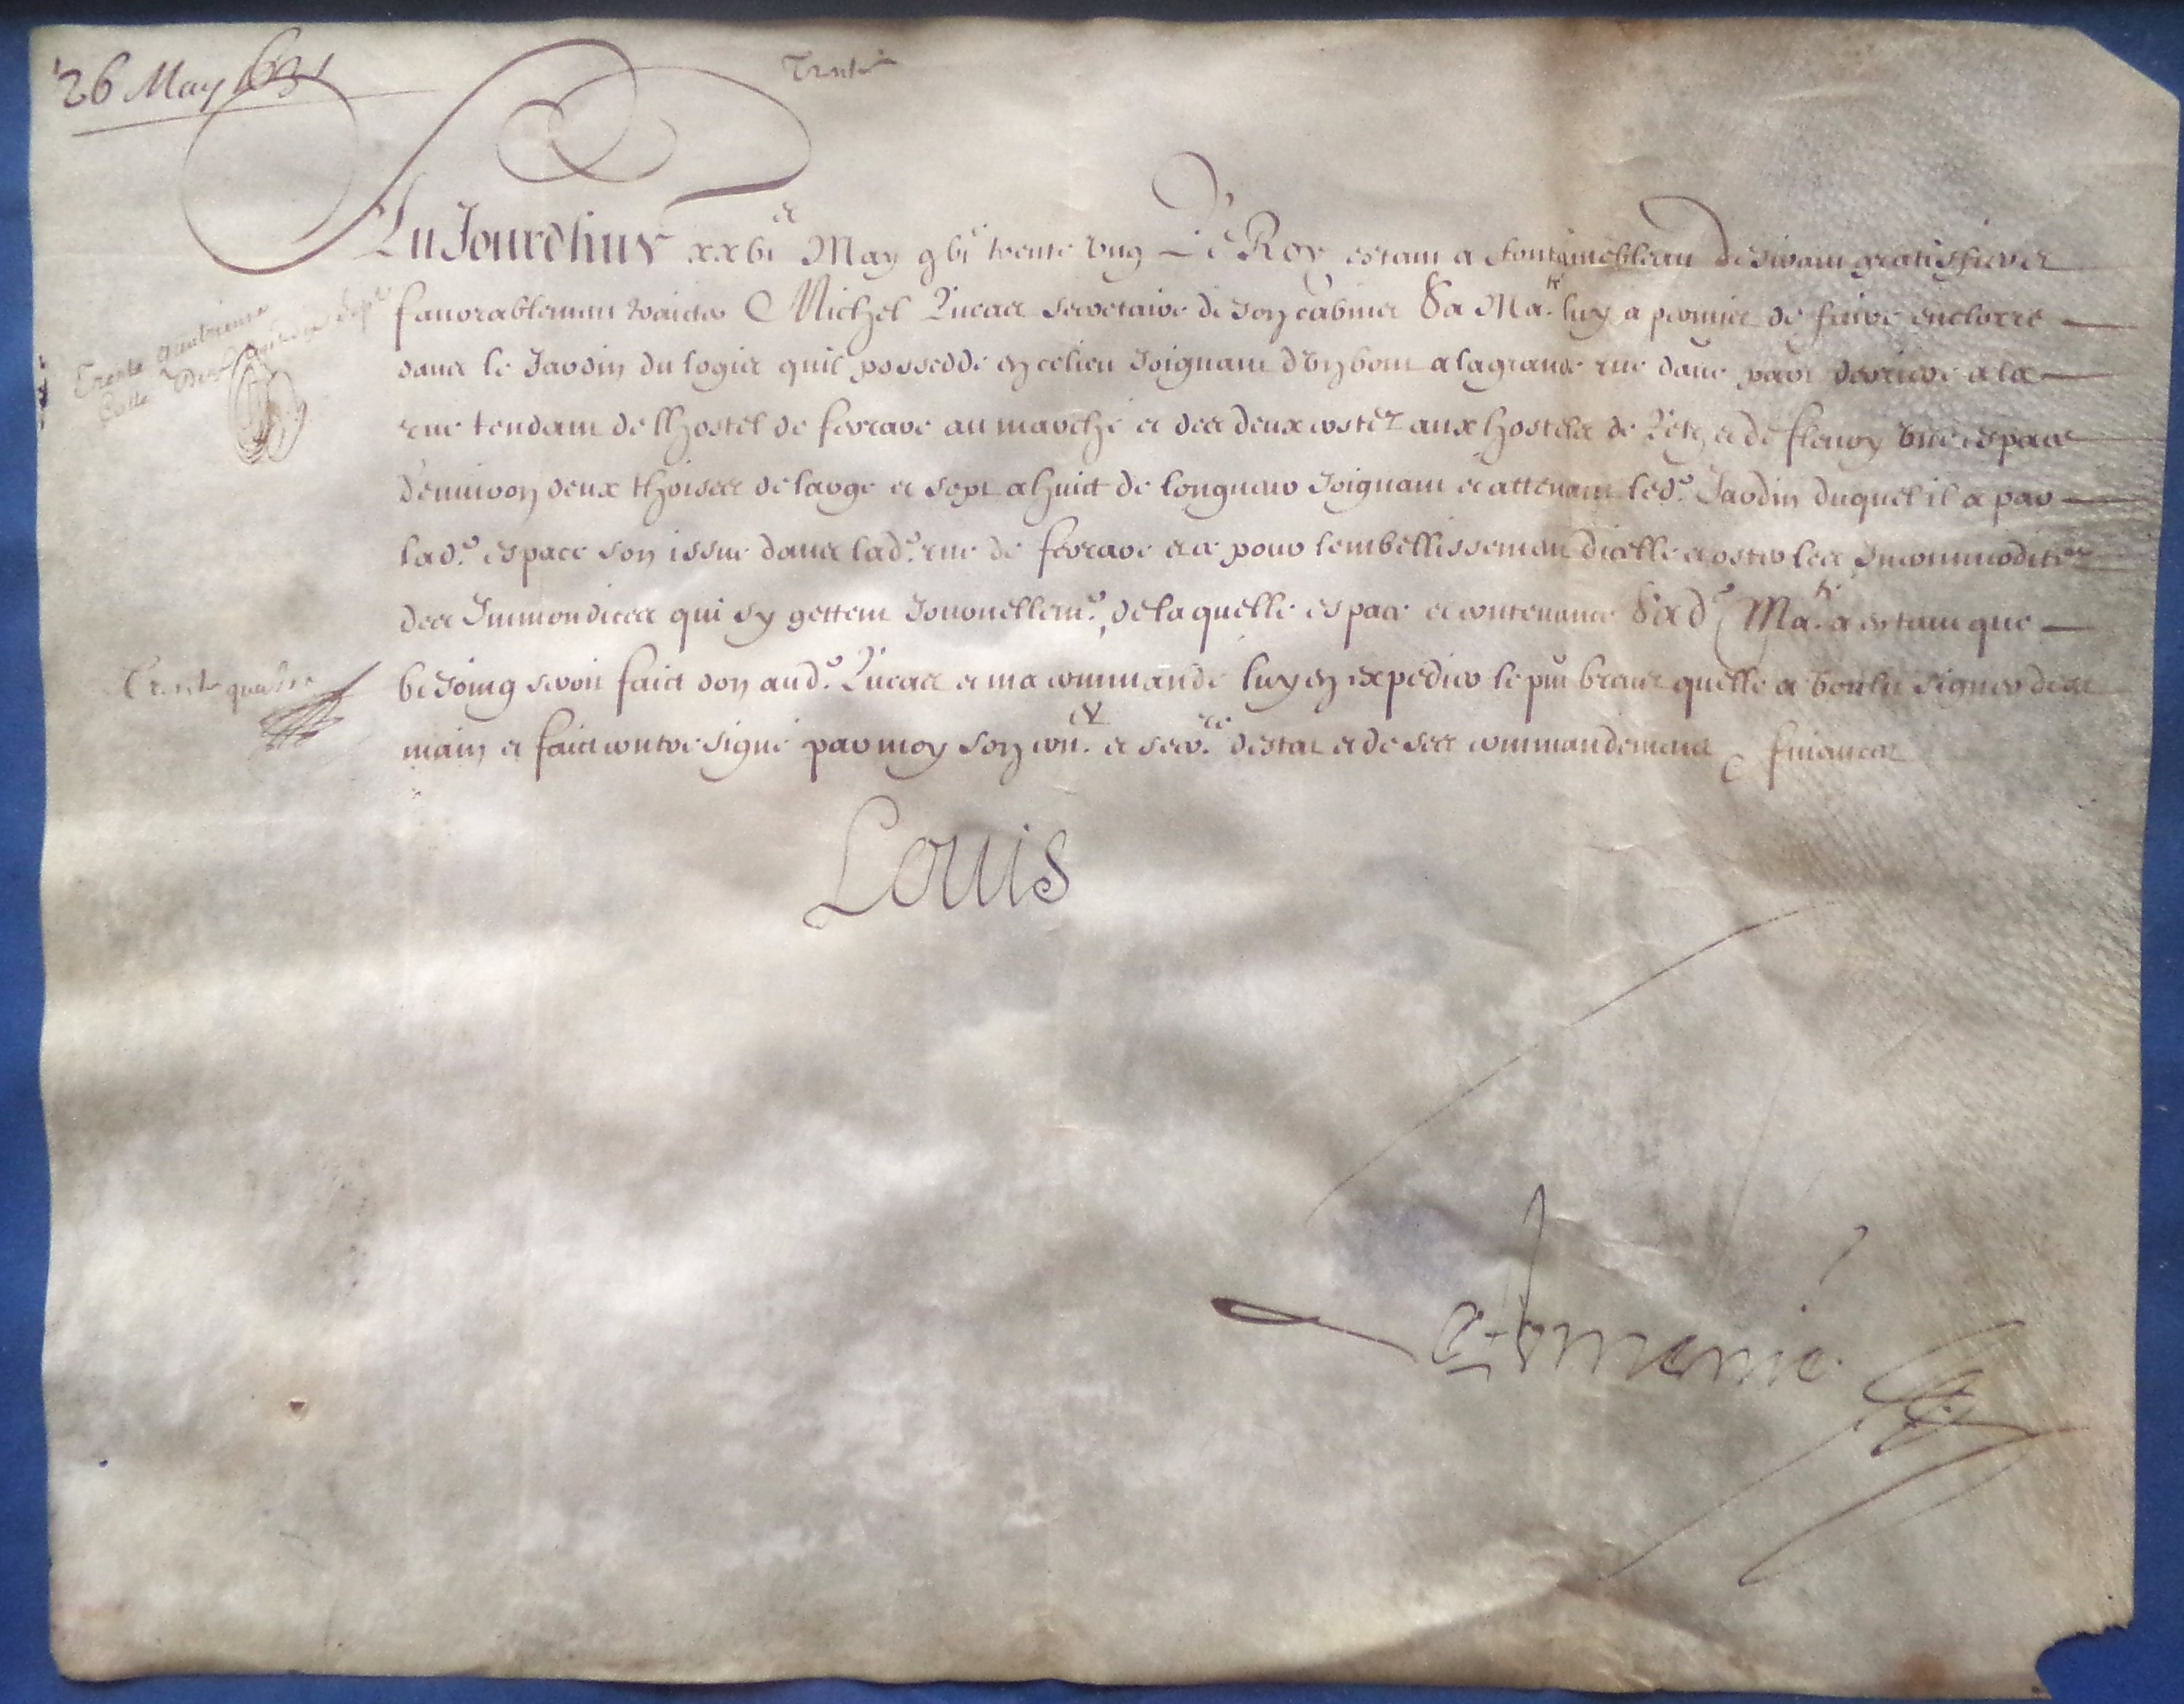 26 May 1631
Aujourdhuy xxvi.e May gvi.c trente ung Le Roy estant a fontainebleau desirant gratiffier et
favorablement traicter Michel Lucas secretaire de son cabinet Sa Ma.té luy a permis de faire enclorre
dans le Jardin du logis quil possedde en ce lieu Joignant d'un bout a la grande rue dau par derriere a la
rue tendant de lhostel de ferrare au marché et des deux costez aux hostels de Retz et de fleury une espace
denviron deux thoises de large et sept a huict de longueur Joignant et attenant led.t Jardin duquel il a par
lad.e espace son issue dans lad.e rue de ferrare et ce pour lembellissement dicelle et oster les Incommoditez
des Immondices qui sy gettent Journellem.t, de laquelle espace et contenance Sad.e Ma.té a en tant que
besoing seroit faict don aud.t Lucas et ma commandé luy en expedier le pnt brevet quelle a voulu signer de sa
main et faict contresigné par moy son con.er et secr.re destat et de ses commandemens et finances
Louis
Trente quatre
De Lomenie